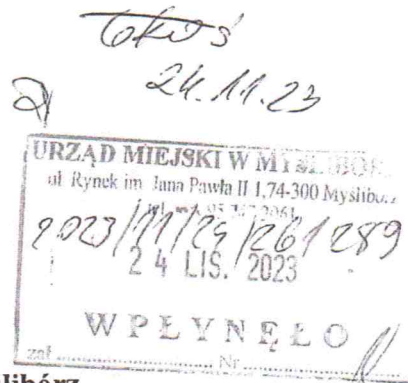 GKiOŚ
24.11.23
URZĄD MIEJSKI W
ul. Rynek im. Jana Pawła II 1,74-300 Myślibórz
2023/11/24/261289
24 LIS. 2023
WPŁYNĘŁO
zał. Nr
libórz